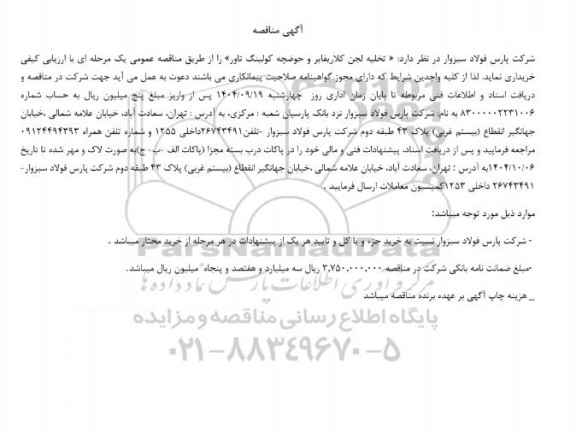 آگهی مناقصه
شرکت پارس فولاد سبزوار در نظر دارد: « تخلیه لجن کلاریفایر و حوضچه کولینگ تاور» را از طریق مناقصه عمومی یک مرحله ای با ارزیابی کیفی
خریداری نماید. لذا از کلیه واجدین شرایط که دارای مجوز گواهینامه صلاحیت پیمانکاری می باشند دعوت به عمل می آید جهت شرکت در مناقصه و
دریافت اسناد و اطلاعات فنی مربوطه تا پایان زمان اداری روز چهارشنبه ۱۴۰۴/۰۹/۱۹ پس از واریز مبلغ پنج میلیون ریال به حساب شماره
۸۳۰۰۰۰۰۲۲۳۱۰۰۶ به نام: شرکت پارس فولاد سبزوار نزد بانک پارسیان شعبه : مرکزی، به آدرس : تهران، سعادت آباد، خیابان علامه شمالی ،خیابان
جهانگیر انقطاع (بیستم غربی) پلاک ۴۳ طبقه دوم شرکت پارس فولاد سبزوار -تلفن۲۶۷۴۳۴۹۱داخلی ۱۲۵۵ و شماره تلفن همراه ۰۹۱۲۴۴۹۴۳۹۳
مراجعه فرمایید و پس از دریافت اسناد، پیشنهادات فنی و مالی خود را در پاکات درب بسته مجزا (پاکات الف -ب- ج)به صورت لاک و مهر شده تا تاریخ
۱۴۰۴/۱۰/۰۶به آدرس : تهران، سعادت آباد، خیابان علامه شمالی ،خیابان جهانگیر انقطاع (بیستم غربی) پلاک ۴۳ طبقه دوم شرکت پارس فولاد سبزوار-
۲۶۷۴۳۴۹۱ داخلی ۱۲۵۳کمیسیون معاملات ارسال فرمایید .
موارد ذیل مورد توجه میباشد:
- شرکت پارس فولاد سبزوار نسبت به خرید جزء و یا کل و تایید هر یک از پیشنهادات در هر مرحله از خرید مختار میباشد .
-مبلغ ضمانت نامه بانکی شرکت در مناقصه ۳,۷۵۰,۰۰۰,۰۰۰ ریال سه میلیارد و هفتصد و پنجاه میلیون ریال میباشد.
_ هزینه چاپ آگهی بر عهده برنده مناقصه میباشد
ParsNamadData
مرکز فرآوری اطلاعات پارس نماد داده ها
پایگاه اطلاع رسانی مناقصه و مزایده
۰۲۱-۸۸۳۴۹۶۷۰-۵